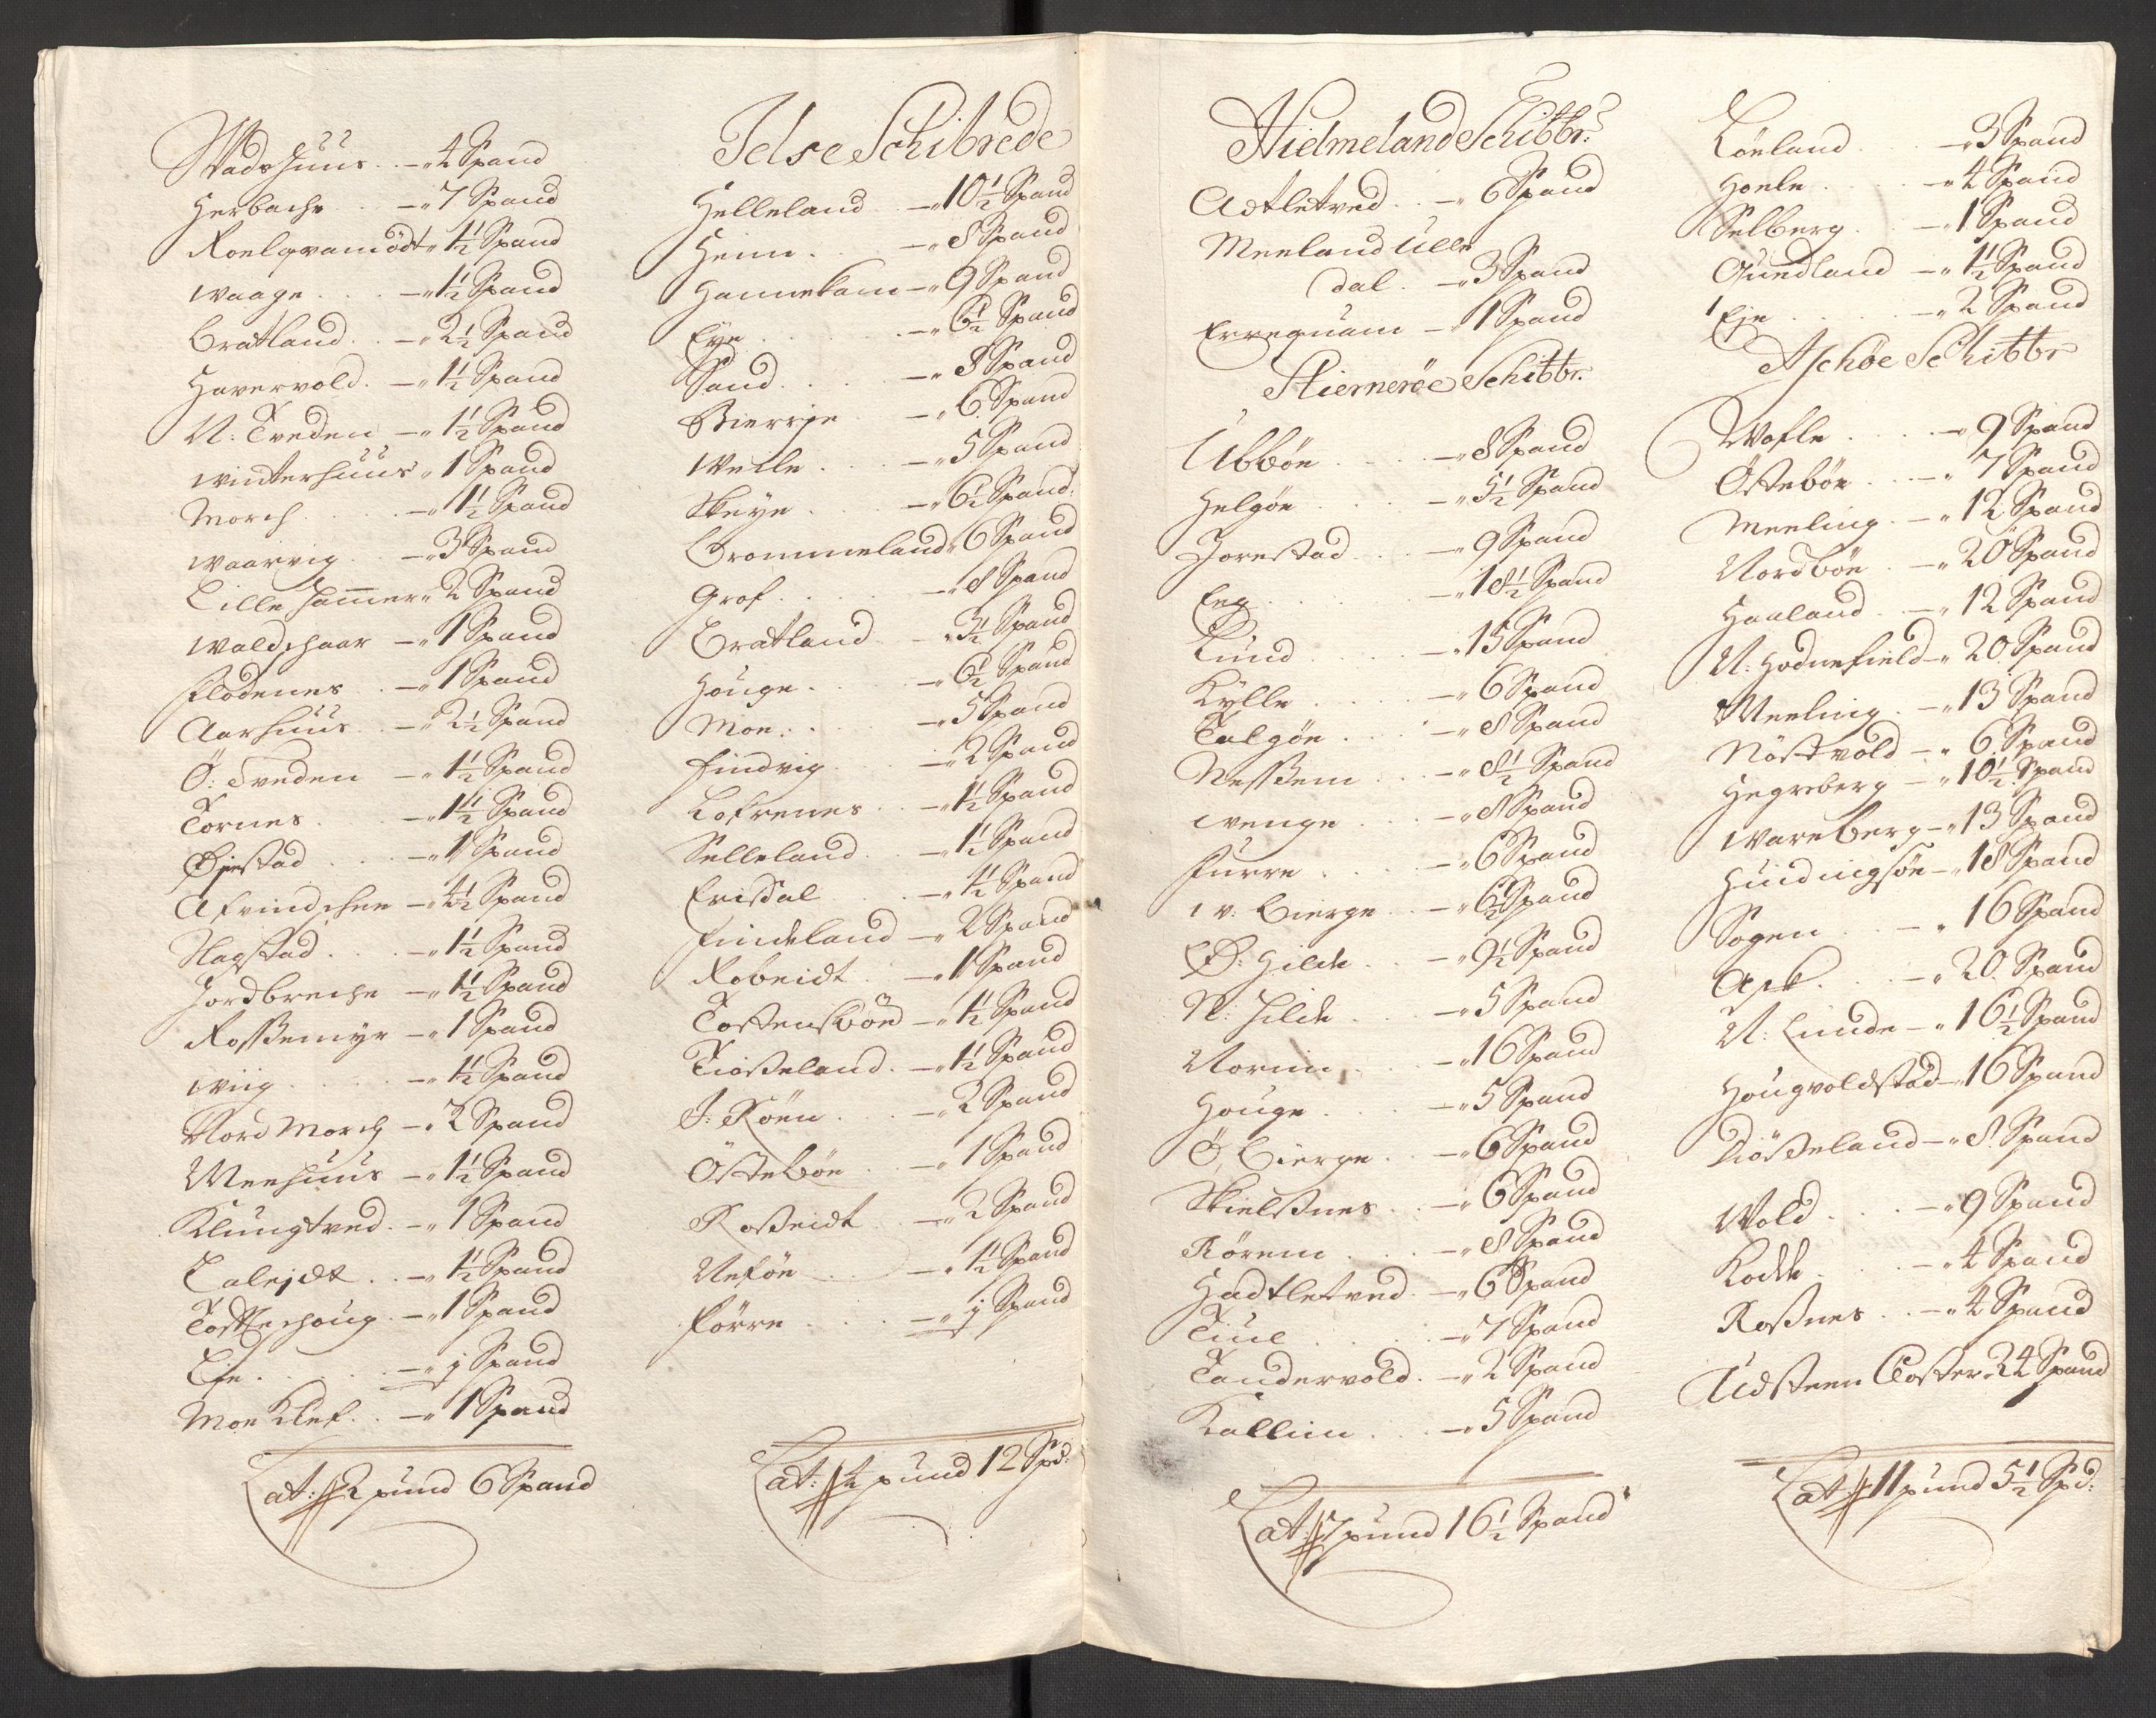 Wadshuus . . — „ 4 Spand
Herbache . . — „ 7 Spand
Roelqvamödt „ 1½ Spand
Waage . . . — „ 1½ Spand
Bratland . . — „ 2½ Spand
Havervold . — „ 1½ Spand
N: Tveden — „ 1½ Spand
Winterhuus „ 1 Spand
Morch . . . — „ 1½ Spand
Waarvig . . — „ 3 Spand
Lille Hammer „ 2 Spand
Waldschaar — „ 1 Spand
Flodenes . . — „ 1 Spand
Aarhuus . . — „ 2½ Spand
Ö: Tveden — „ 1½ Spand
Tornes . . . — „ 1½ Spand
Øystad . . . — „ 1 Spand
Afvindschee — „ 4½ Spand
Nagstad . . . — „ 1½ Spand
Jordbreche — „ 1½ Spand
Rossemyr — „ 1 Spand
Wiig . . . . — „ 1½ Spand
Nord Morch — „ 2 Spand
Meehuus — „ 1½ Spand
Klungtved . — „ 1 Spand
Talejdt . . — „ 1½ Spand
Tosterhoug . — „ 1 Spand
Eje . . . . — „ j Spand
Moe Klef . . — „ 1 Spand
Lat: 2 pund 6 Spand
Jelse Schibrede
Helleland — „ 10½ Spand
Heim . . — „ 8 Spand
Hannekam — „ 9 Spand
Eye . . . . — „ 6½ Spand
Sand . . . — „ 8 Spand
Bierrge . — „ 6 Spand
Welle . . . — „ 5 Spand
Skeye . . . — „ 6½ Spand
Brommeland „ 6 Spand
Grof . . . . — „ 8 Spand
Bratland . — „ 3½ Spand
Houge . . . — „ 6½ Spand
Moe . . . . — „ 5 Spand
Findvig . . — „ 2 Spand
Lofrenes . . — „ 1½ Spand
Selleland . — „ 1½ Spand
Erisdal . . — „ 1½ Spand
Findeland — „ 2 Spand
Robeidt . . — „ 1 Spand
Tostensböe — „ 1½ Spand
Tiosseland . — „ 1½ Spand
I: Röen . . — „ 2 Spand
Östeböe . . — „ 1 Spand
Rosseidt . . — „ 2 Spand
Neföe . . . — „ 1½ Spand
Förre . . . — „ j Spand
Lat: 4 pund 12 Spd:
Hielmeland Schibbr:
Adtletved . . — „ 6 Spand
Meeland Ulle
dal . — „ 3 Spand
Erreqvam — „ 1 Spand
Stiernerøe Schibbr.
Ubböe . . . — „ 8 Spand
Helgöe . . . — „ 5½ Spand
Jorestad . . — „ 9 Spand
Eeg . . . . — „ 18½ Spand
Lund . . . . — „ 15 Spand
Kylle . . . — „ 6 Spand
Talgöe . . . — „ 8 Spand
Nessem . . . — „ 8½ Spand
Wenge . . . — „ 8 Spand
Furre . . . . — „ 6 Spand
W: Bierge . . — „ 6½ Spand
Ø: Hilde . . — „ 9½ Spand
N: Hilde . . — „ 5 Spand
Norim . . . — „ 16 Spand
Houge . . . — „ 5 Spand
Ö: Bierge . . — „ 6 Spand
Skielsnes . . — „ 6 Spand
Rörem . . . — „ 8 Spand
Hadtletved . — „ 6 Spand
Tiul . . . . — „ 7 Spand
Tandervold . — „ 2 Spand
Kallim . . . — „ 5 Spand
Lat: 7 pund 16½ Spand
Löeland . . — „ 3 Spand
Hoele . . . — „ 4 Spand
Selberg . . — „ 1 Spand
Quedland — „ 1½ Spand
Eje . . . . — „ 2 Spand
Aschøe Schibbr
Wofle . . . — „ 9 Spand
Östeböe . . — „ 7 Spand
Meeling . — „ 12 Spand
Nordböe . — „ 20 Spand
Haaland . — „ 12 Spand
N: Hodnefield — „ 20 Spand
Meeling . — „ 13 Spand
Nöstvold — „ 6 Spand
Hegreberg — „ 10½ Spand
Wareberg — „ 13 Spand
Huidingsöe — „ 18 Spand
Sogen . . — „ 16 Spand
Ask . . . — „ 20 Spand
N: Lunde — „ 16½ Spand
Hougvoldstad — „ 16 Spand
Diösseland — „ 8 Spand
Wold . . . — „ 9 Spand
Kodde . . . — „ 4 Spand
Rossnes . . — „ 4 Spand
Udsteen Closter „ 24 Spand
Lat: 11 pund 5½ Spd: